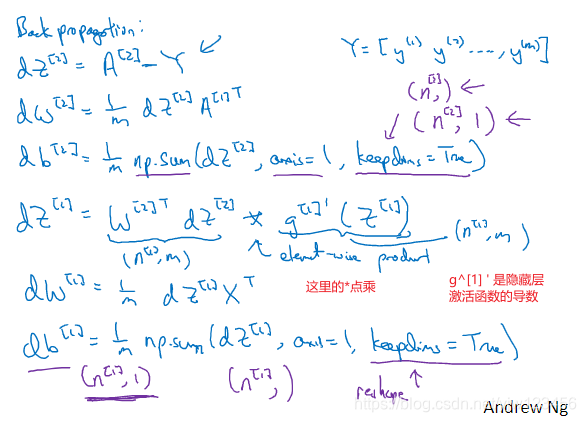 Back propagation:
dZ^[2] = A^[2] - Y ↙
Y = [y^(1) y^(2) ...., y^(m)]
dW^[2] = 1/m dZ^[2] A^[1]T
(n^[2],) ←
(n^[2], 1) ←
db^[2] = 1/m np.sum(dZ^[2], axis=1, keepdims=True)
dZ^[1] = W^[2]T dZ^[2] * g^[1]'(Z^[1])
(n^[1],m)
element-wise product
(n^[1],m)
dW^[1] = 1/m dZ^[1] X^T
这里的*点乘
g^[1] ' 是隐藏层
激活函数的导数
db^[1] = 1/m np.sum(dZ^[1], axis=1, keepdims=True)
(n^[1],1) (n^[1],) reshape
Andrew Ng